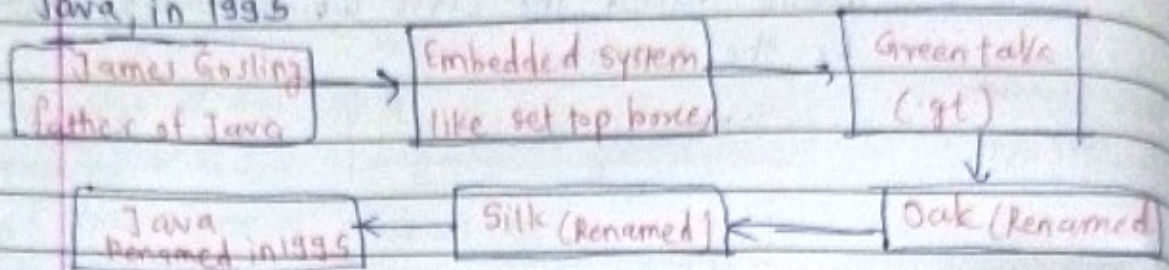 Java, in 1995
James Gosling
father of Java
Embedded system
like set top boxes
Green talk
(gt)
Oak (Renamed
Silk (Renamed)
Java
Renamed in 1995